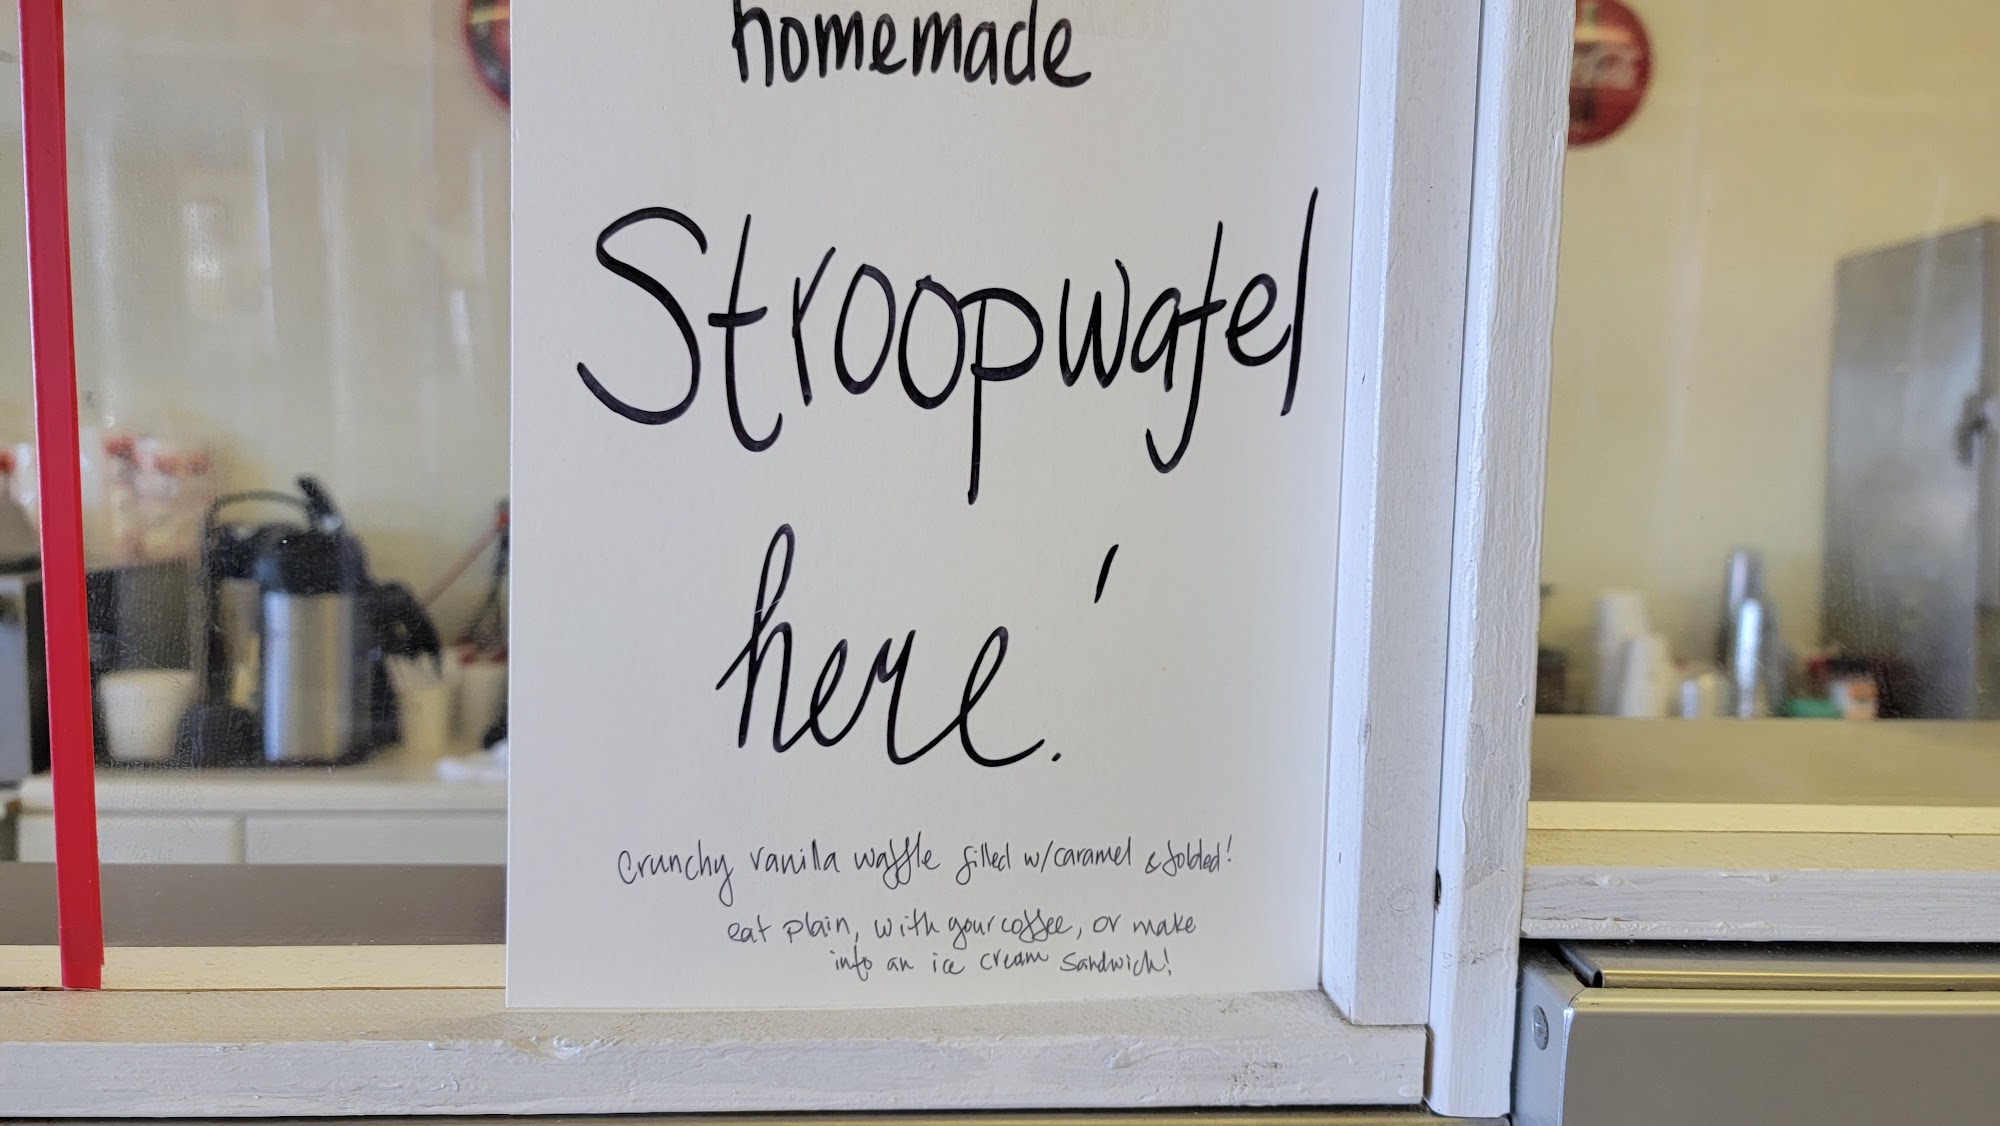 homemade
Stroopwafel
here!
Crunchy vanilla waffle filled w/caramel & folded!
eat plain, with your coffee, or make
into an ice cream sandwich!